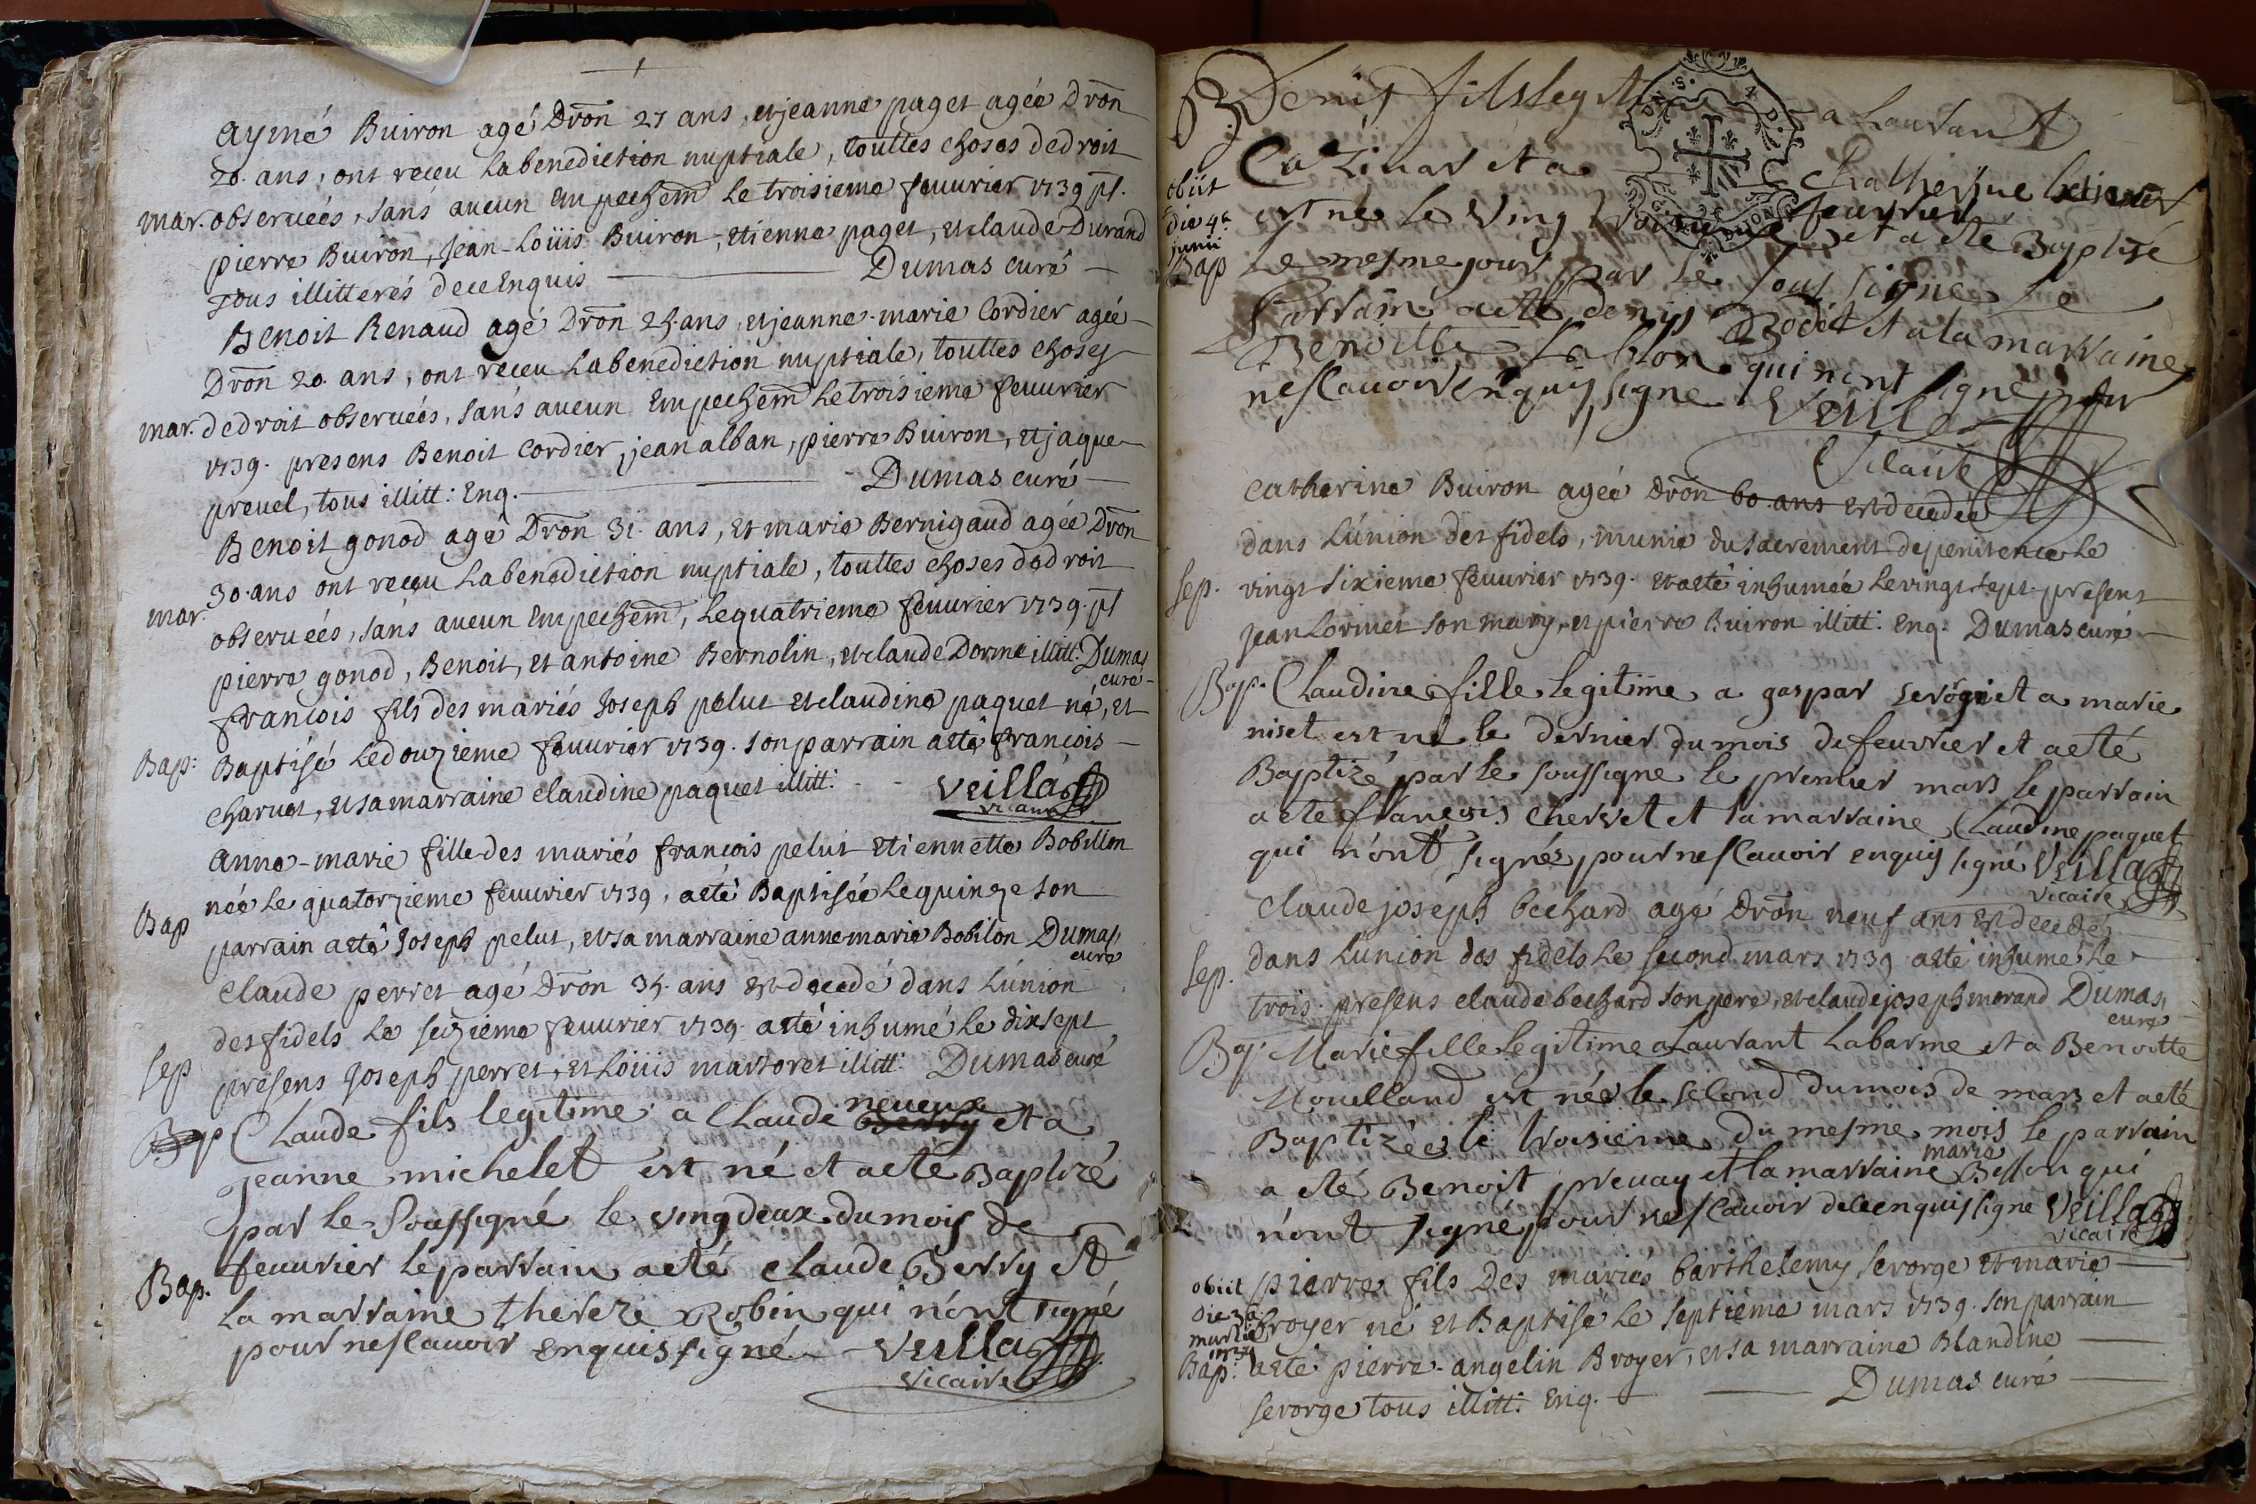 aymé Buiron agé Dron 27 ans, et jeanne paget agée Dron
20. ans, ont receu La benediction nuptiale, touttes choses de droit
mar. observeés, sans aucun Empechem̃ Le troisieme feuurier 1739 pñt.
pierre Buiron, Jean-Loüis Buiron, etienne paget, et claude Durand
Tous illitterés de ce Enquis Dumas curé
Benoit Renaud agé Dron 25 ans, et jeanne-marie Cordier agée
Dron 20. ans, ont receu La benediction nuptiale, touttes choses
mar. de droit observeés, sans aucun Empechem̃ Le troisieme feuurier
1739. presens Benoit Cordier, jean alban, pierre Buiron, et jaque
preuel, tous illitt: Enq. Dumas curé
Benoit gonod agé Dron 31. ans, Et marie Bernigaud agée Dron
30. ans ont receu La benediction nuptiale, touttes choses de droit
mar. observeés, sans aucun Empechem̃, Le quatrieme feuurier 1739. pñt
pierre gonod, Benoit, et antoine Bernolin, et claude Dorme illitt. Dumas
curé
francois fils des mariés Joseph pelut et claudine paquet né, Et
Bap: Baptisé Le douzieme feuurier 1739. son parrain a eté francois
charuet, et sa marraine claudine paquet illitt: Veilla
vicaire
anne-marie fille des mariés francois pelut etiennette Bobillon
née Le quatorzieme feuurier 1739, a eté Baptisée Le quinze son
Bap parrain a eté Joseph pelut, et sa marraine anne marie Bobilon Dumas
curé
Claude perret agé Dron 35. ans est decedé dans L'union
des fidels Le seizieme feuurier 1739. a eté inhumé le dix sept
sep presens Joseph perret, et Loüis martoret illitt: Dumas curé
Bap Claude fils legitime a Claude neveux Berry et a
jeanne michelet est né et a eté Baptizé
par le soussigné le vingdeux du mois de
Bap. feuurier le parrain a eté claude Berry et
la marraine thereze Robin qui n'ont signé
pour ne scauoir enquis signé Veilla
vicaire
Denis fils legit a Laurant
Cazinar et a Chatherine
obiit est né le Ving troisieme feuurier et a eté Baptisé
die 4a
junii
Bap Le mesme jour par le soussigné Le
Parrain a eté denis Bodet et a la marraine
Benoitte qui n'ont signé pour
ne scauoir enquis signe Veilla
Vicaire
Catherine Buiron ageé Dron 60 ans est decedée
dans L'union des fidels, munie du sacrement de penitence Le
sep. vingt sixieme feuurier 1739. et a eté inhumée Le vingt sept. present
Jean Lorinet son mary, et pierre Buiron illitt. Enq. Dumas curé
Bap. Claudine fille legitime a gaspar et a marie
niset est né le dernier du mois de feuurier et a eté
Baptizé par le soussigné le premier mars le parrain
a eté francois Chervet et la marraine Claudine paquet
qui n'ont signéz pour ne scauoir enquis signé Veilla
vicaire
Claude joseph bechard agé Dron neuf ans est decedé
sep. dans L'union des fidels Le second mars 1739 a eté inhumé Le
trois. presens claude bechard son pere, et claude joseph morand Dumas
curé
Bap. Marie fille legitime a Laurant Labarme et a Benoitte
Nouelland est née le second du mois de mars et a eté
Baptizée le troisieme du mesme mois le parrain
a eté Benoit preuay et la marraine marie Besson qui
n'ont signé pour ne scauoir de ce enquis signe Veilla
vicaire
obiit pierre fils Des mariés barthelemy seuorge et marie
die 3a
martii
1739
Broyer né et Baptisé Le septieme mars 1739. son parrain
Bap. a eté pierre-angelin Broyer, et sa marraine Blandine
seuorge tous illitt: Enq. Dumas curé